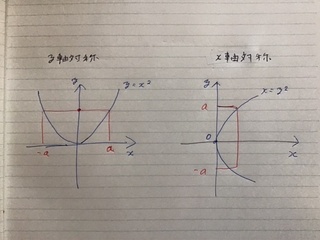 y軸対称
x軸対称
y
y=x²
-a
a
x
y
x=y²
a
0
-a
x